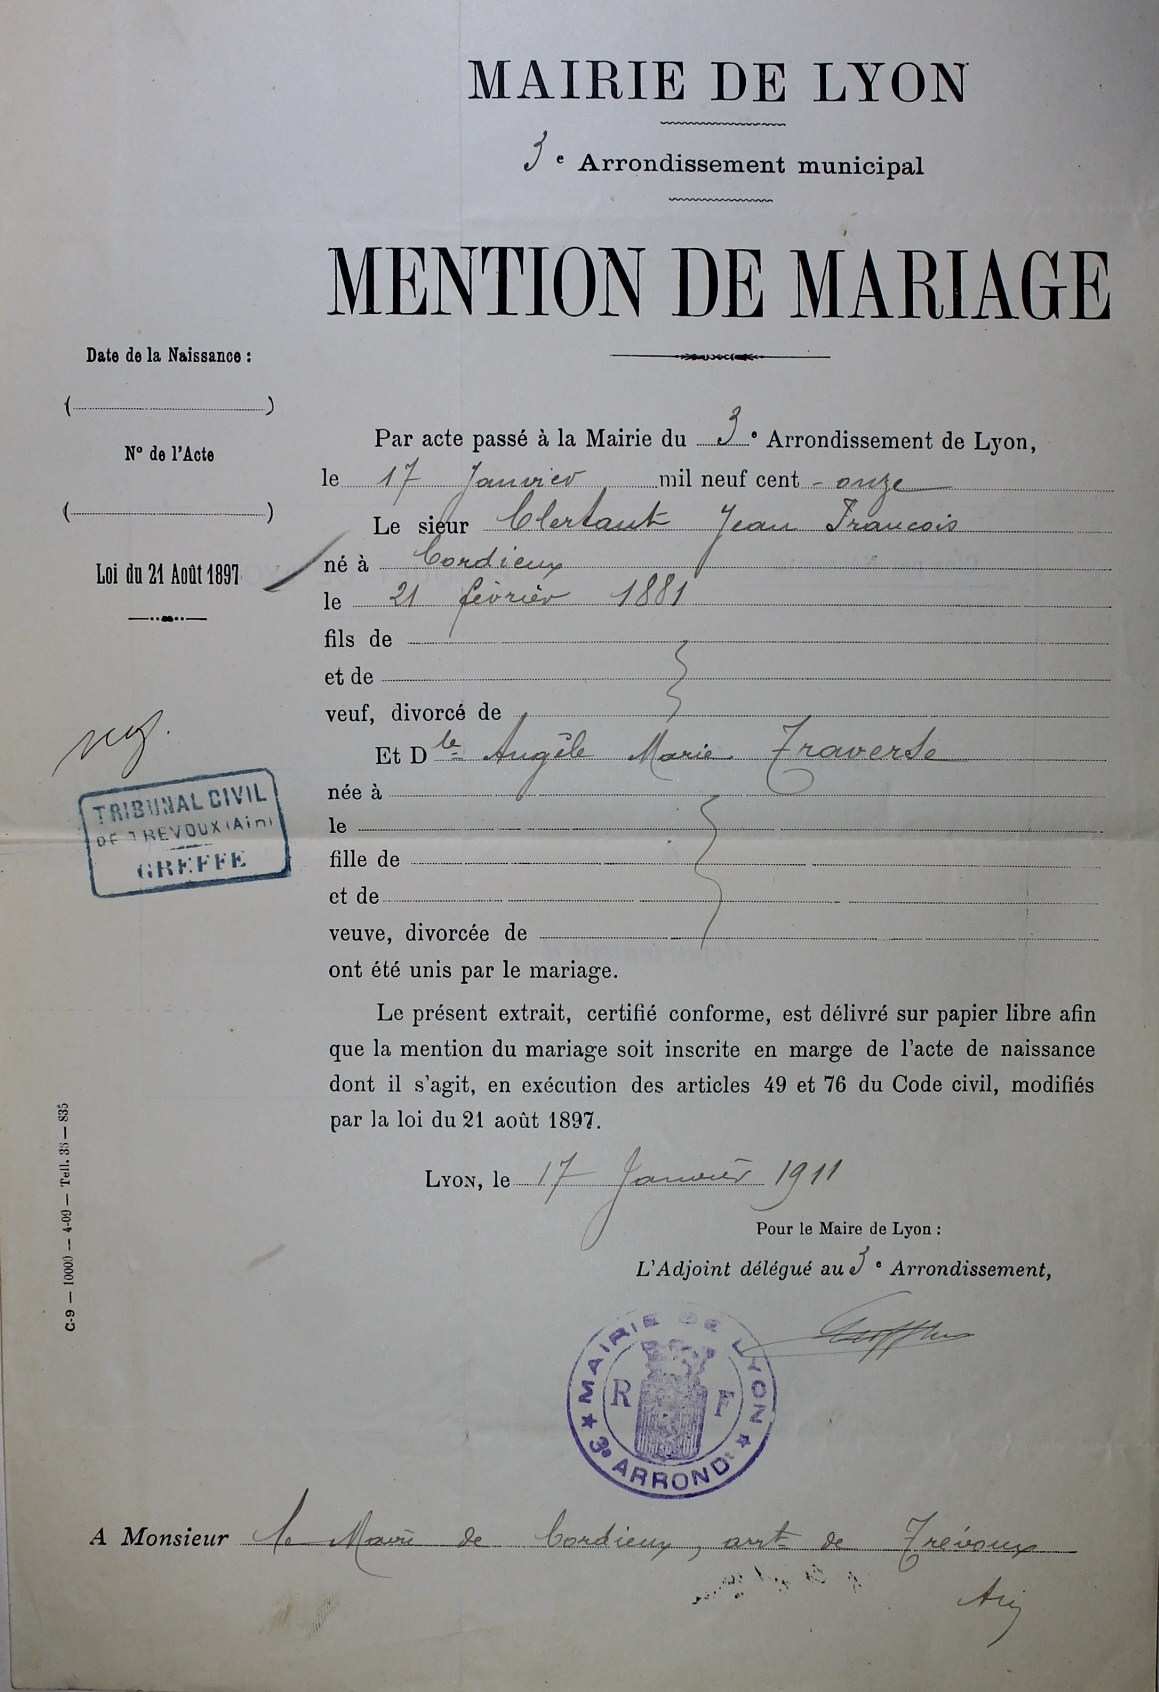 MAIRIE DE LYON
3e Arrondissement municipal
MENTION DE MARIAGE
Date de la Naissance :
(                    )
N° de l'Acte
(                    )
Loi du 21 Août 1897
TRIBUNAL CIVIL
DE TREVOUX (Ain)
GREFFE
Par acte passé à la Mairie du 3e Arrondissement de Lyon,
le 17 Janvier mil neuf cent - onze
Le sieur Clertant Jean Francois
né à Cordieux
le 21 février 1881
fils de
et de
veuf, divorcé de
Et Dlle Angèle Marie Traverse
née à
le
fille de
et de
veuve, divorcée de
ont été unis par le mariage.
Le présent extrait, certifié conforme, est délivré sur papier libre afin
que la mention du mariage soit inscrite en marge de l'acte de naissance
dont il s'agit, en exécution des articles 49 et 76 du Code civil, modifiés
par la loi du 21 août 1897.
Lyon, le 17 Janvier 1911
Pour le Maire de Lyon :
L'Adjoint délégué au 3e Arrondissement,
MAIRIE DE LYON
R F
★ 3e ARRONDt ★
A Monsieur le Maire de Cordieux, arrt de Trévoux
Ain
C-9 — 10000 — 4-09 — Tell. 35 — 835